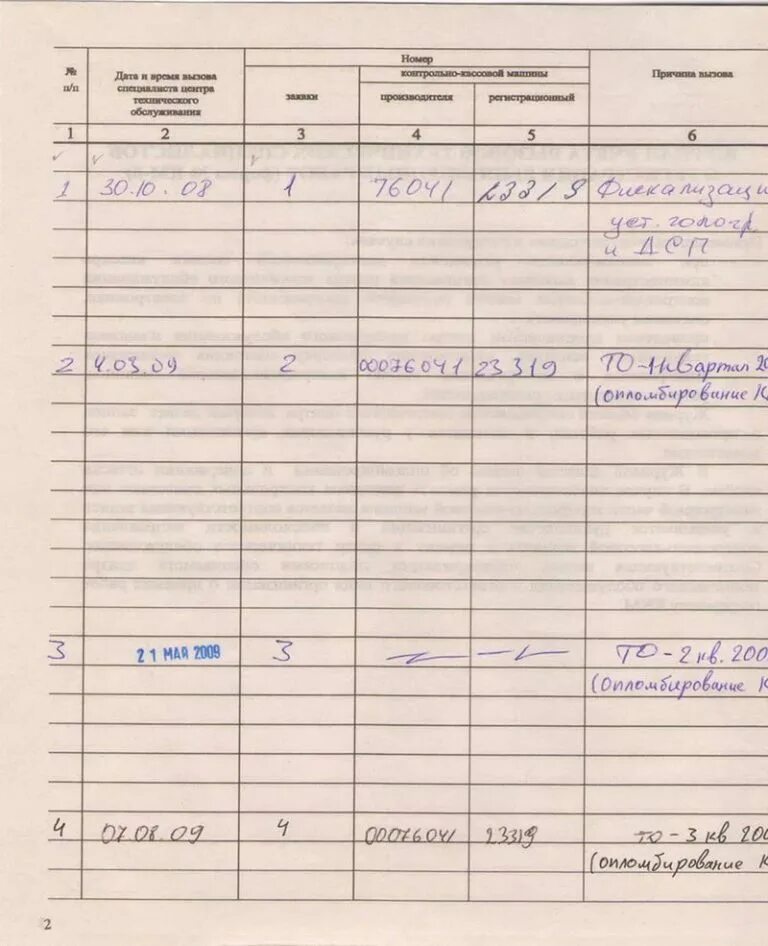 № п/п
Дата и время вызова
специалиста центра
технического
обслуживания
Номер
заявки
контрольно-кассовой машины
производителя
регистрационный
Причина вызова
1 2 3 4 5 6
1 30.10.08 1 76041 23319 Фискализаци
уст. гологр.
и ДСП
2 4.03.09 2 00076041 23319 ТО-1 квартал 20
(опломбирование К
3 21 МАЯ 2009 3 ТО-2 кв. 200
(опломбирование К
4 07.08.09 4 00076041 23319 ТО-3 кв 200
(опломбирование К
2